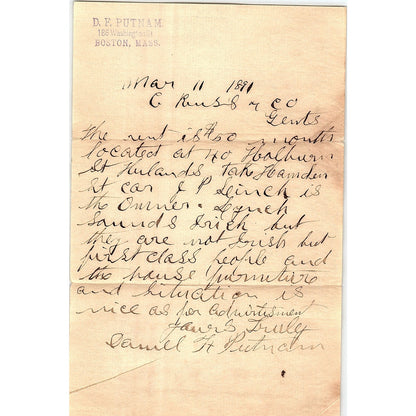 D. F. PUTNAM.
186 Washington St.
BOSTON, MASS.
Mar 11 1891
C & Co
Gents
The rent is $50 month
located at 40 Holburn
St Take Hamden
St car J P Leinch is
the Owner - Lynch
sounds Irich but
they are not Irish but
first class people and
the house furniture
and situation is
nice as per advirtisment
Yours Truly
Daniel F Putnam